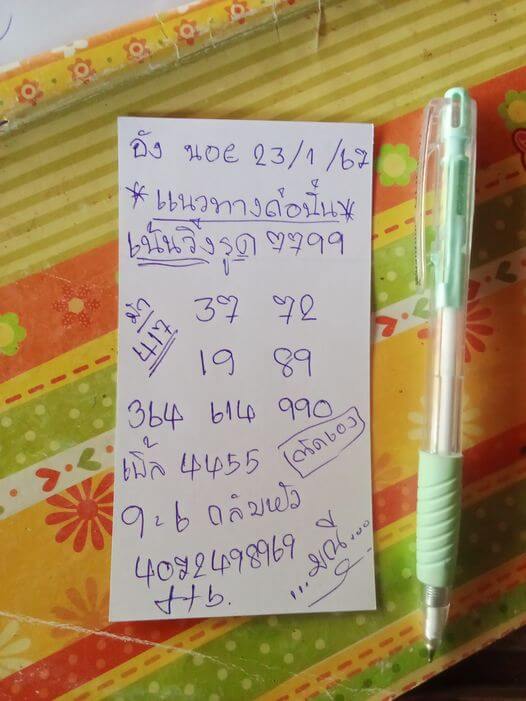 อัง นอย 23/1/67
*แนวทางต่อปั้น*
เน้นวิ่งรูด 7799
417
37 72
19 89
364 614 990
เบิ้ล 4455
กลับหัว
4072498969
...มณี...